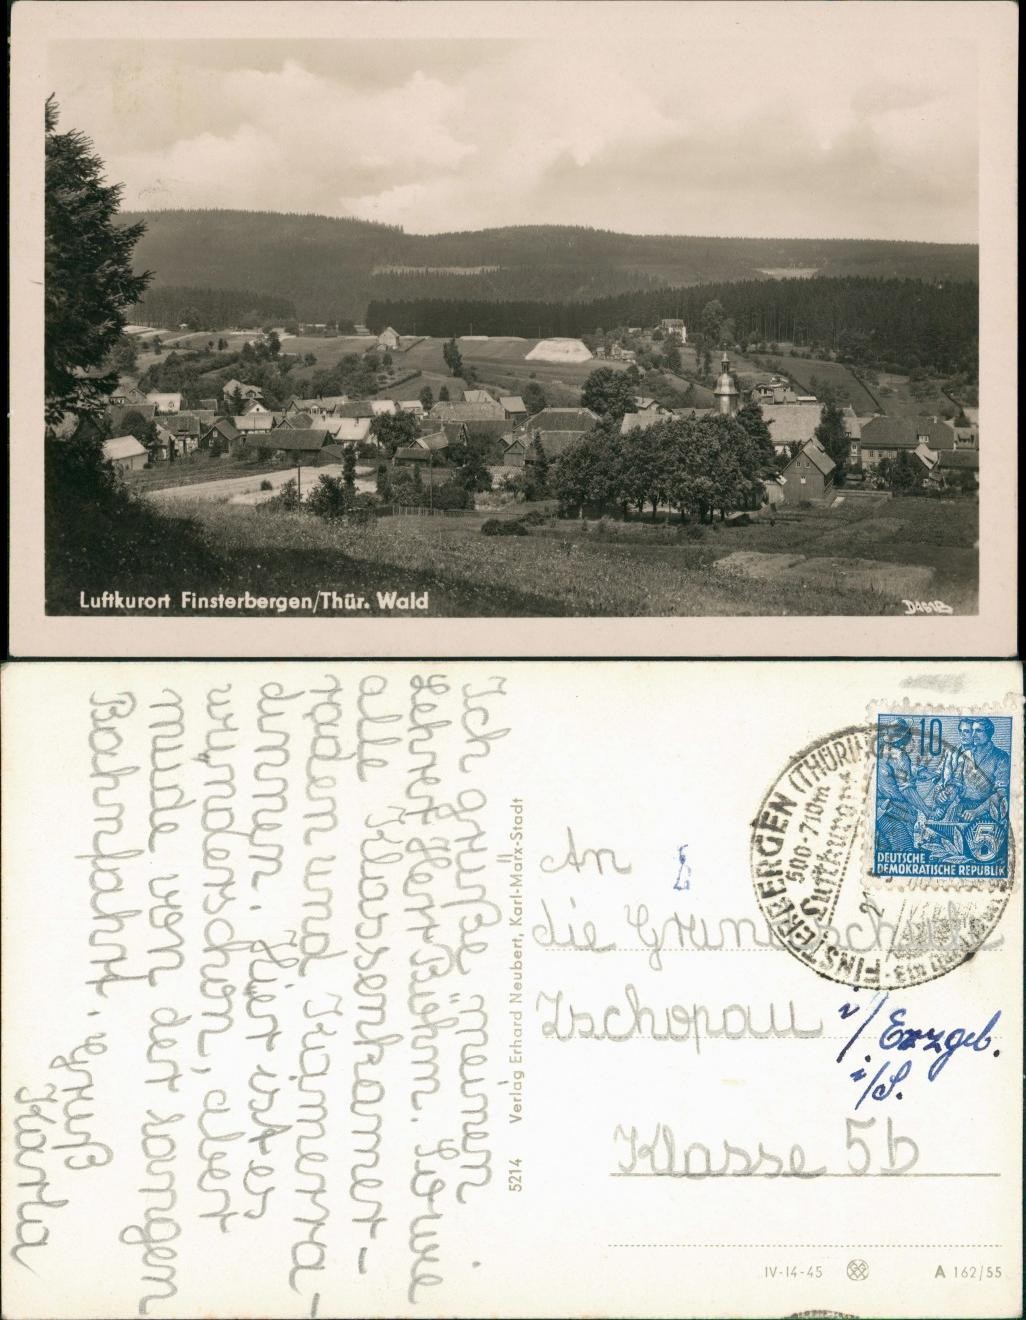 Luftkurort Finsterbergen/Thür. Wald
Ich grüße meinen
Lehrer Herr Böhm. Sowie
alle Klassenkamer-
raden und Kammerra-
dinnen. Hier ist es
wunderschön, aber
müde von der langen
Bachnfahrt. Gruß
Karla
5214 Verlag Erhard Neubert, Karl-Marx-Stadt
An
die Grundschule
Zschopau
i/ Erzgeb.
i/S.
Klasse 5b
10
5
DEUTSCHE
DEMOKRATISCHE REPUBLIK
FINSTERBERGEN (THÜRINGER
500-710m
Luftkurort
IV-14-45
A 162/55